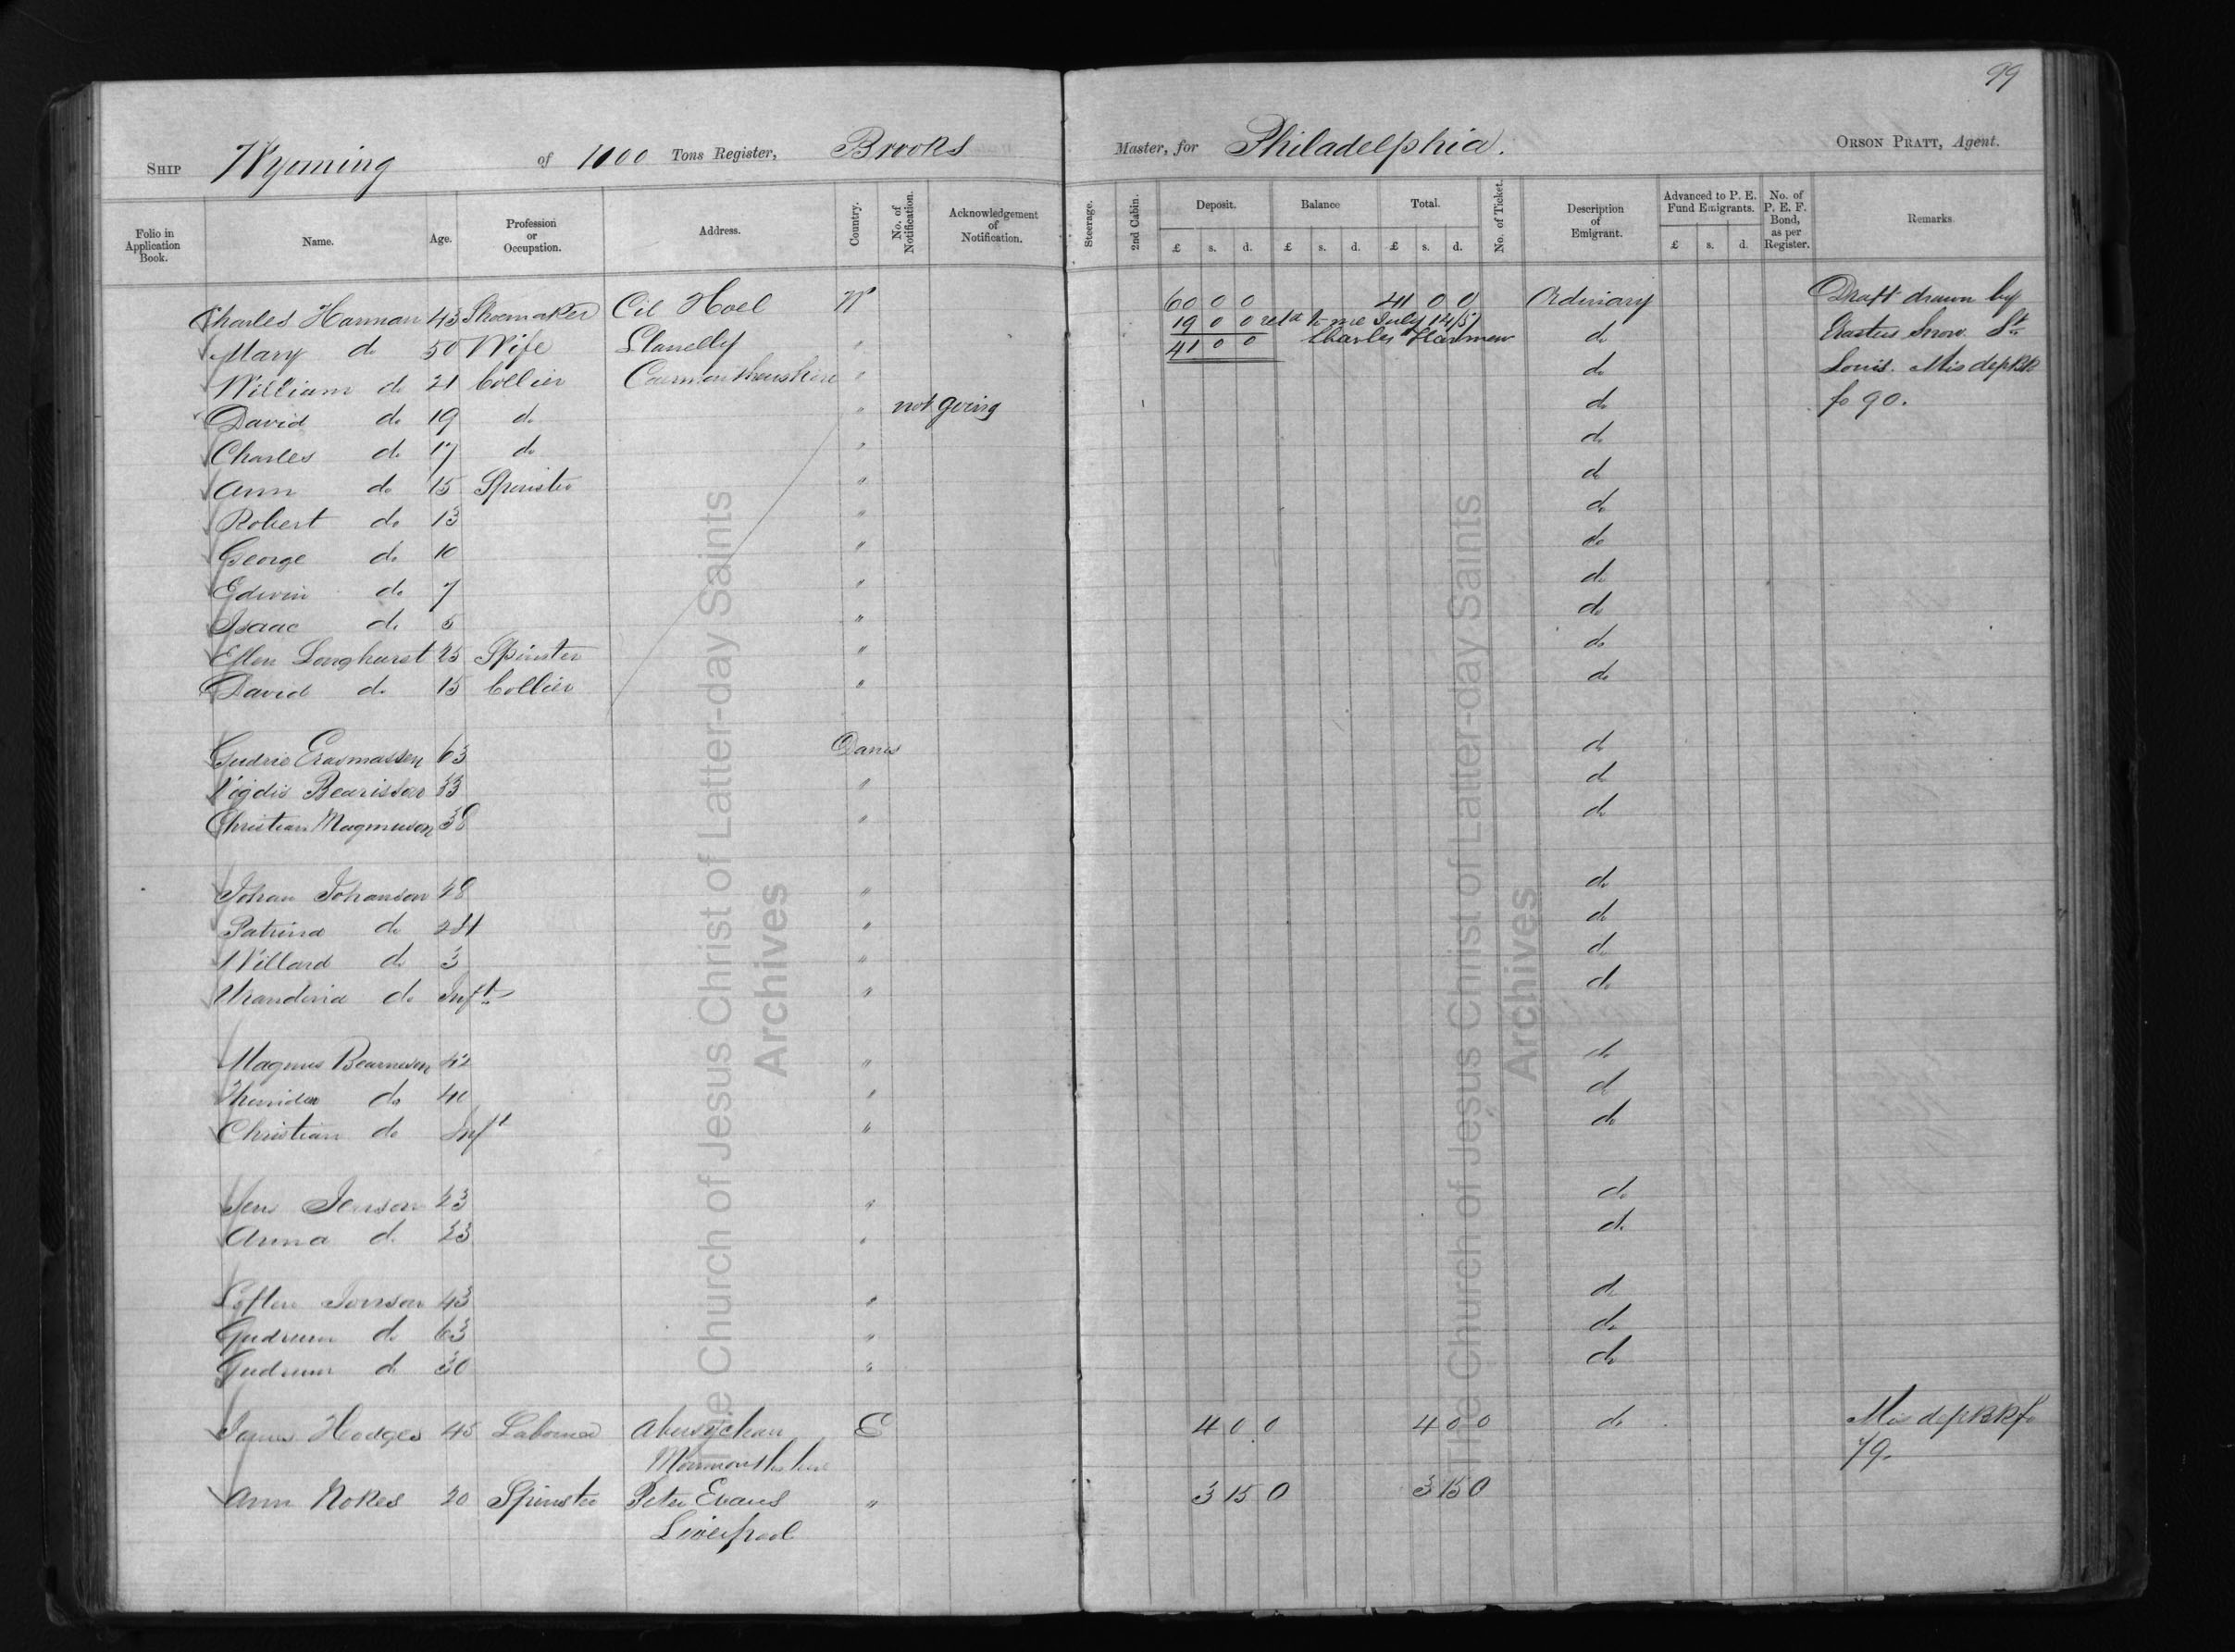 99
SHIP Wyoming of 1100 Tons Register, Brooks Master, for Philadelphia. ORSON PRATT, Agent.
Folio in Application Book. Name. Age. Profession or Occupation. Address. Country. No. of Notification. Acknowledgement of Notification. Steerage. 2nd Cabin. Deposit. Balance Total. No. of Ticket. Description of Emigrant. Advanced to P. E. Fund Emigrants. No. of P. E. F. Bond, as per Register. Remarks
£ s. d. £ s. d. £ s. d. £ s. d.
Charles Harman 43 Shoemaker Cil Hoel W 60 0 0 41 0 0 Ordinary Draft drawn by
19 0 0 retd to me July 14/57
Mary do 50 Wife Llanelly " 41 0 0 Charles Harmen do Erastus Snow St
William do 21 Collier Carmarthenshire " do Louis. Mis dep BK
David do 19 do " not going do fo 90.
Charles do 17 do " do
Ann do 15 Spinster " do
Robert do 13 " do
George do 10 " do
Edwin do 7 " do
Isaac do 5 " do
Ellen Longhurst 25 Spinster " do
David do 15 Collier " do
Gudrie Erasmassen 63 Danes do
Vigdis 33 " do
Christian Magnuson 38 " do
Johan Johanson 28 " do
Patrina do 24 " do
Willard do 3 " do
do Inft " do
Magnus Bearnson 42 " do
do 40 " do
Christian do Inft " do
Jens Jenson 23 " do
Anna do 23 " do
Loften Jonson 43 " do
Gudrun do 63 " do
Gudrun do 30 " do
James Hodges 45 Laborer Abersychan E 4 0 0 4 0 0 do Mis dep BK fo
Monmouthshire 79.
Ann Nokes 20 Spinster Peter Evans " 3 15 0 3 15 0
Liverpool
The Church of Jesus Christ of Latter-day Saints
Archives
The Church of Jesus Christ of Latter-day Saints
Archives